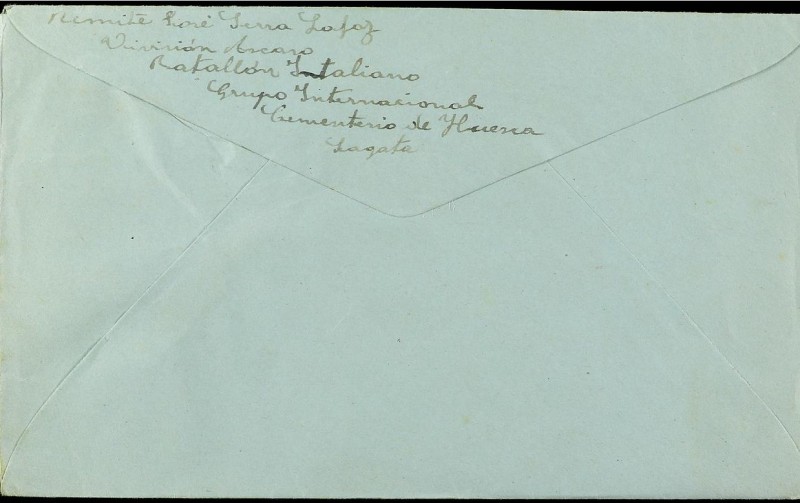 Remite José Serra Lafoz
División Ascaso
Batallón Italiano
Grupo Internacional
Cementerio de Huesca
Sagata